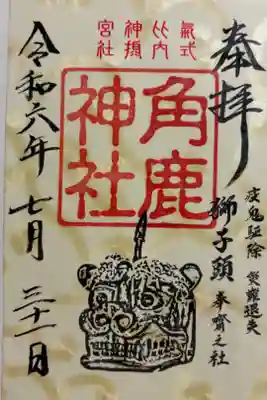 奉拝
疫鬼驅除 災難退失
獅子頭 奉齋之社
氣比神宮
式内摂社
角鹿
神社
令和六年 七月 三十一日